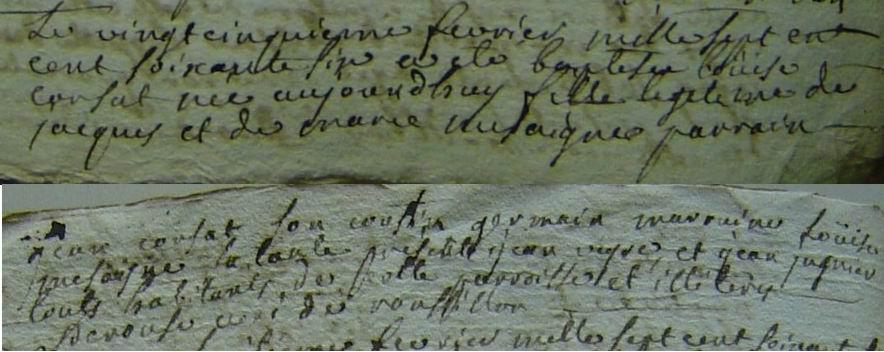 Le vingtcinquieme fevrier mille sept cent
cent soixante six a ete baptisée Loüise
corsat née aujourdhuy fille legitime de
jacques et de marie mesaigne parrain
jean corsat son cousin germain marraine Loüise
mesaigne sa tante presents jean et jean
touts habitants de cette parroisse et illiterés
curé de roussillon
fevrier mille sept cent soixante